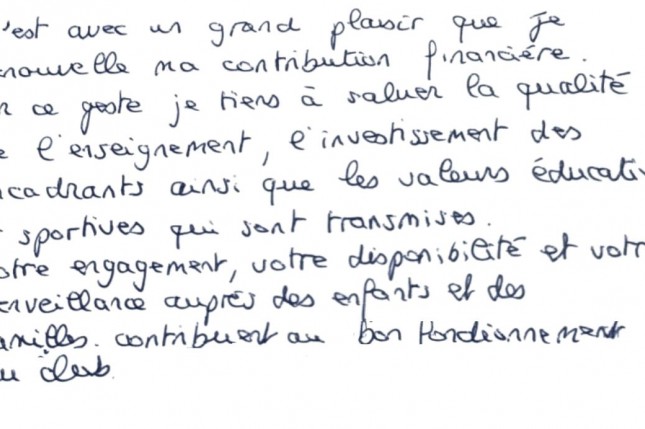 'est avec un grand plaisir que je
nouvelle ma contribution financière.
n ce geste je tiens à saluer la qualité
e l'enseignement, l'investissement des
cadrants ainsi que les valeurs éducati
t sportives qui sont transmises.
otre engagement, votre disponibilité et votr
enveillance auprès des enfants et des
amilles. contribuent au bon fonctionnement
u club.